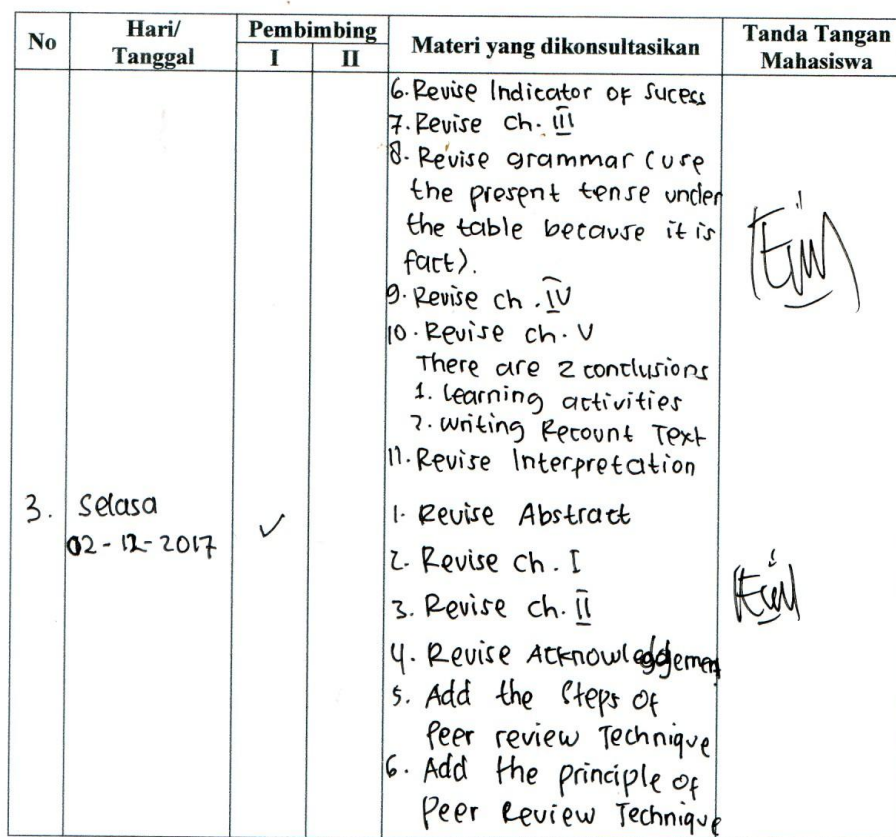 No Hari/ Tanggal Pembimbing I II Materi yang dikonsultasikan Tanda Tangan Mahasiswa
6. Revise Indicator of Sucess
7. Revise Ch. III
8. Revise grammar (use
the present tense under
the table because it is
fact).
9. Revise ch. IV
10. Revise ch. V
There are 2 conclusions
1. Learning activities
2. Writing Recount Text
11. Revise Interpretation
3. Selasa ✓ 1. Revise Abstract
02-12-2017
2. Revise ch. I
3. Revise ch. II
4. Revise Acknowledgement
5. Add the Steps of
Peer review Technique
6. Add the principle of
Peer Review Technique